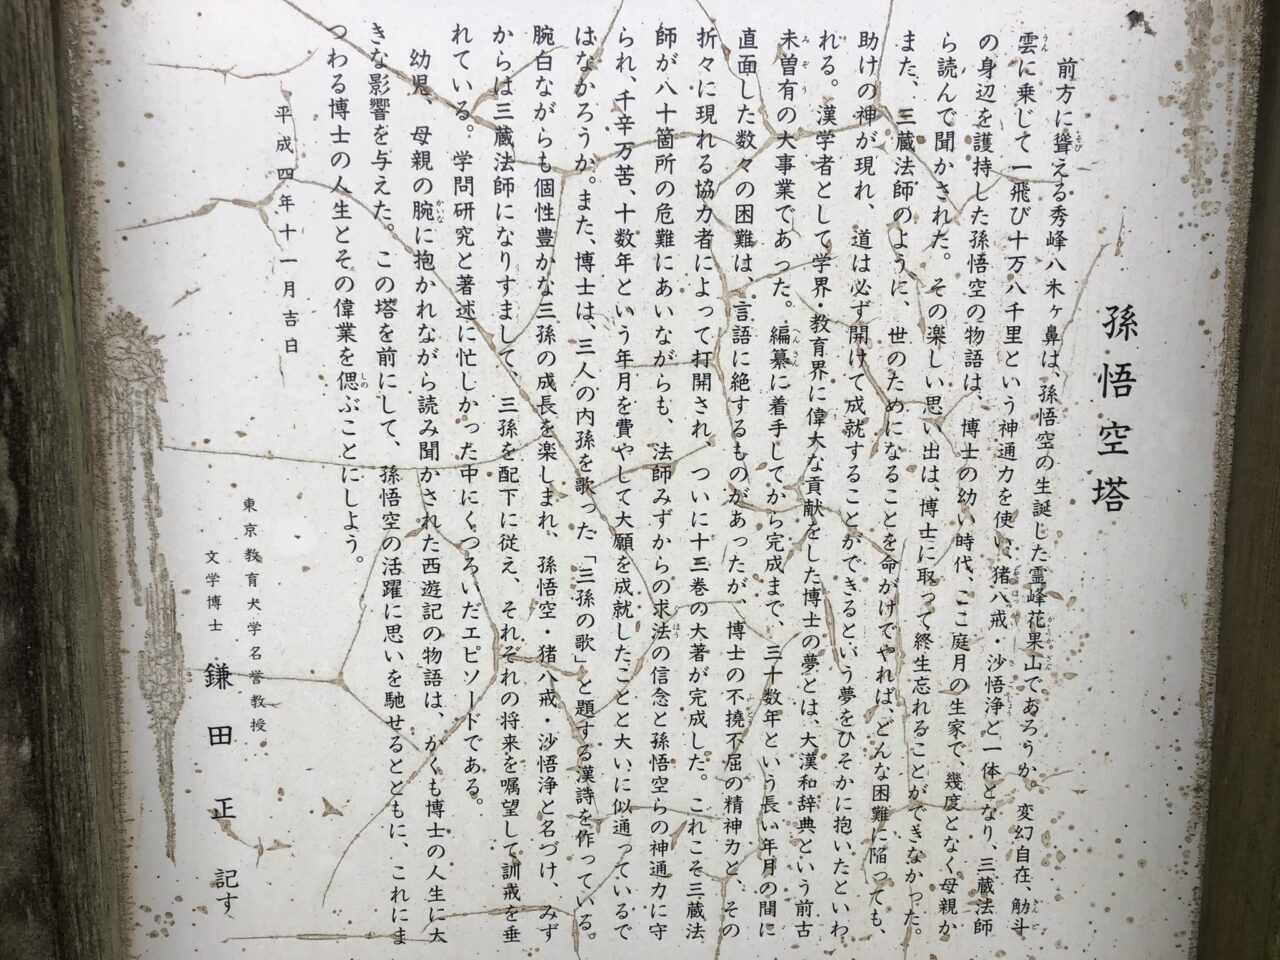 孫悟空塔
前方に聳える秀峰八木ヶ鼻は、孫悟空の生誕した霊峰花果山であろうか。変幻自在、觔斗
雲に乗じて一飛び十万八千里という神通力を使い、猪八戒・沙悟浄と一体となり、三蔵法師
の身辺を護持した孫悟空の物語は、博士の幼い時代、ここ庭月の生家で、幾度となく母親か
ら読んで聞かされた。その楽しい思い出は、博士に取って終生忘れることができなかった。
また、三蔵法師のように、世のためになることを命がけでやれば、どんな困難に陥っても、
助けの神が現れ、道は必ず開けて成就することができるという夢をひそかに抱いたといわ
れる。漢学者として学界・教育界に偉大な貢献をした博士の夢とは、大漢和辞典という前古
未曽有の大事業であった。編纂に着手してから完成まで、三十数年という長い年月の間に
直面した数々の困難は、言語に絶するものがあったが、博士の不撓不屈の精神力と、その
折々に現れる協力者によって打開され、ついに十三巻の大著が完成した。これこそ三蔵法
師が八十箇所の危難にあいながらも、法師みずからの求法の信念と孫悟空らの神通力に守
られ、千辛万苦、十数年という年月を費やして大願を成就したことと大いに似通っているで
はなかろうか。また、博士は、三人の内孫を歌った「三孫の歌」と題する漢詩を作っている。
腕白ながらも個性豊かな三孫の成長を楽しまれ、孫悟空・猪八戒・沙悟浄と名づけ、みず
からは三蔵法師になりすまして、三孫を配下に従え、それぞれの将来を嘱望して訓戒を垂
れている。学問研究と著述に忙しかった中にくつろいだエピソードである。
幼児、母親の腕に抱かれながら読み聞かされた西遊記の物語は、かくも博士の人生に大
きな影響を与えた。この塔を前にして、孫悟空の活躍に思いを馳せるとともに、これにま
つわる博士の人生とその偉業を偲ぶことにしよう。
平成四年十一月吉日
東京教育大学名誉教授
文学博士 鎌田正 記す